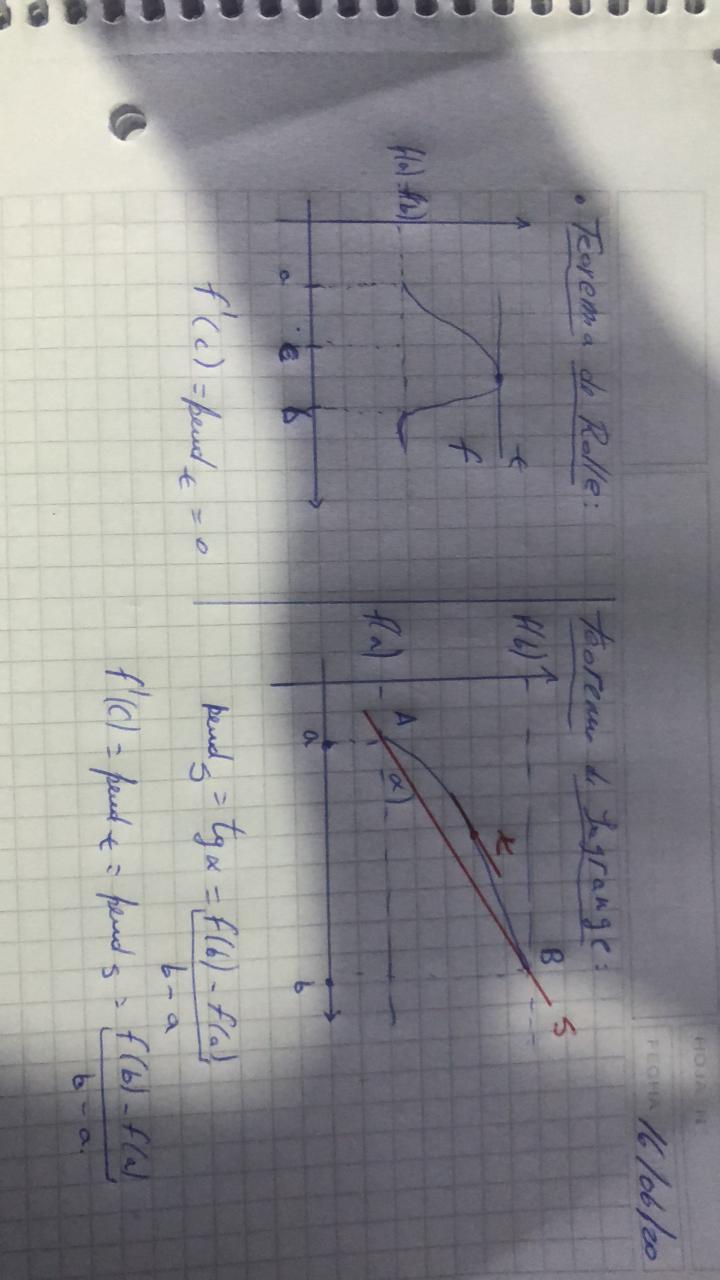 HOJA Nº
FECHA 16/06/20
• Teorema de Rolle:
f(a)=f(b)
t
f
a
c
b
f'(c) = pend t = 0
Teorema de Lagrange:
f(b)
f(a)
A
B
S
t
α
a
b
pend s = tg α = f(b) - f(a)
b - a
f'(c) = pend t = pend s = f(b) - f(a)
b - a.